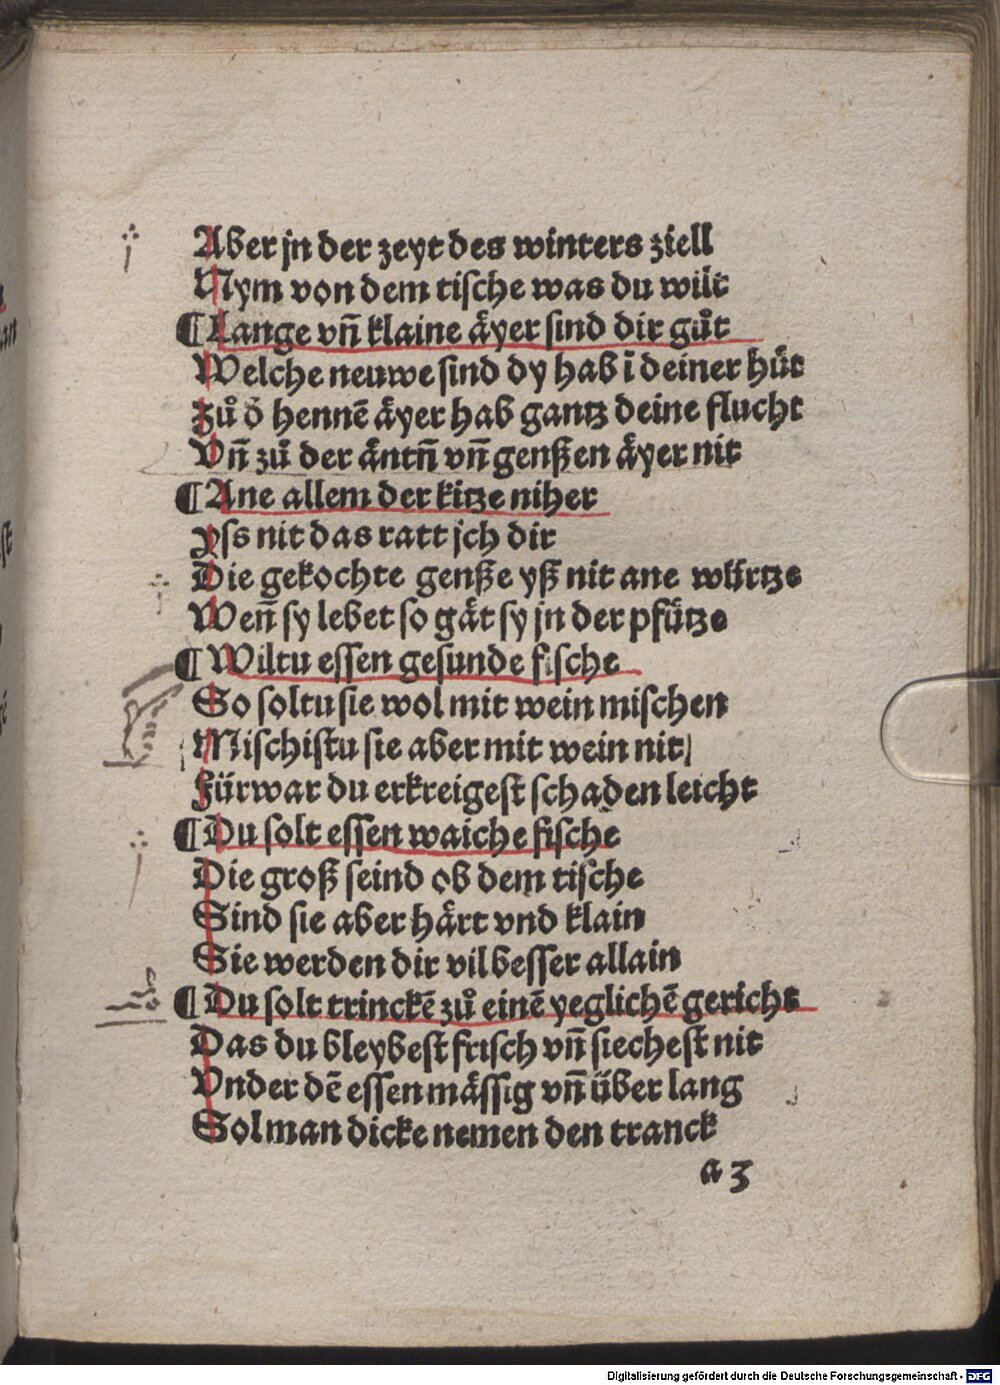 Aber jn der zeyt des winters ziell
Nym von dem tiſche was du wilt
¶ Lange vñ klaine äyer ſind dir gůt
Welche neuwe ſind dy hab ī deiner hůt
Zů d̄ hennē äyer hab gantz deine flucht
Vñ zů der äntñ vñ genßen äyer nit
¶ Ane allem der kitze niher
Yſs nit das ratt jch dir
Die gekochte genße yß nit ane würtze
Weñ ſy lebet ſo gät ſy jn der pfütze
¶ Wiltu eſſen geſunde fiſche
So ſoltu ſie wol mit wein miſchen
Miſchiſtu ſie aber mit wein nit
Fürwar du erkreigeſt ſchaden leicht
¶ Du ſolt eſſen waiche fiſche
Die groß ſeind ob dem tiſche
Sind ſie aber härt vnd klain
Sie werden dir vil beſſer allain
¶ Du ſolt trinckē zů einē yeglichē gericht
Das du bleybeſt friſch vñ ſiecheſt nit
Vnder dē eſſen mäſſig vñ über lang
Sol man dicke nemen den tranck
a 3
Digitalisierung gefördert durch die Deutsche Forschungsgemeinschaft - DFG